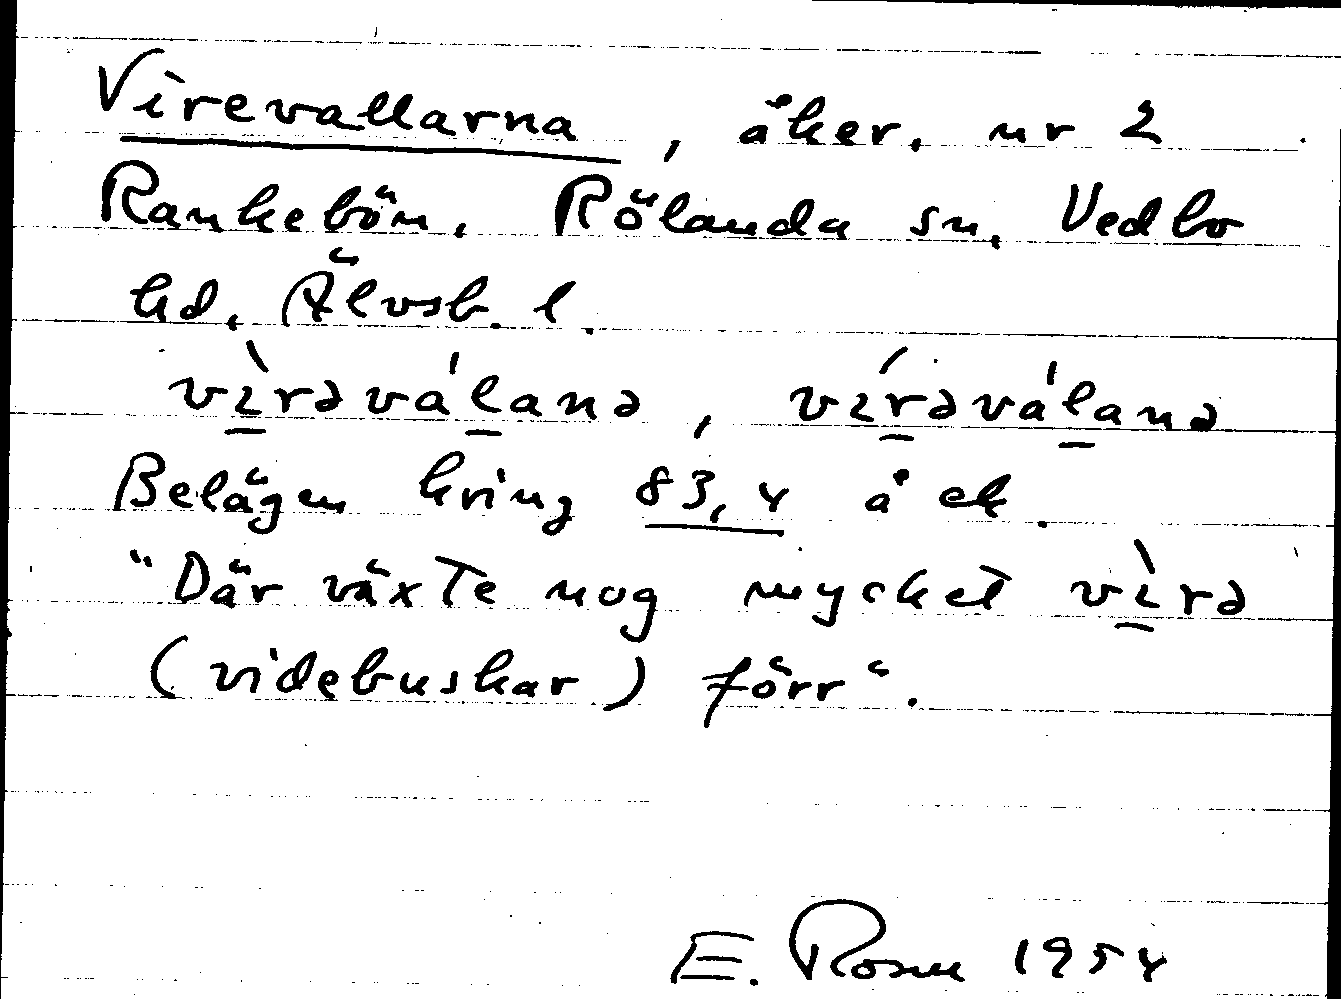 Virevallarna, åker, nr 2
Rankebön. Rölanda sn, Vedbo
hd, Älvsb. l.
vı̱̀rəváḻanə, vıṟ́əváḻanə
Belägen kring 83,4 å ek.
"Där växte nog mycket vı̱̀rə
(videbuskar) förr".
E. Rosu 1954